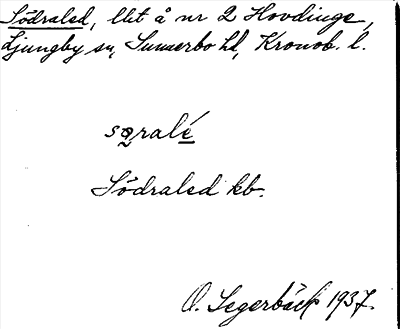 Södralsd, llt å nr 2 Hovdinge,
Ljungby sn, Sunnerbo hd, Kronob. l.
sqralé
Södralsd kb.
O. Segerbäck 1937.